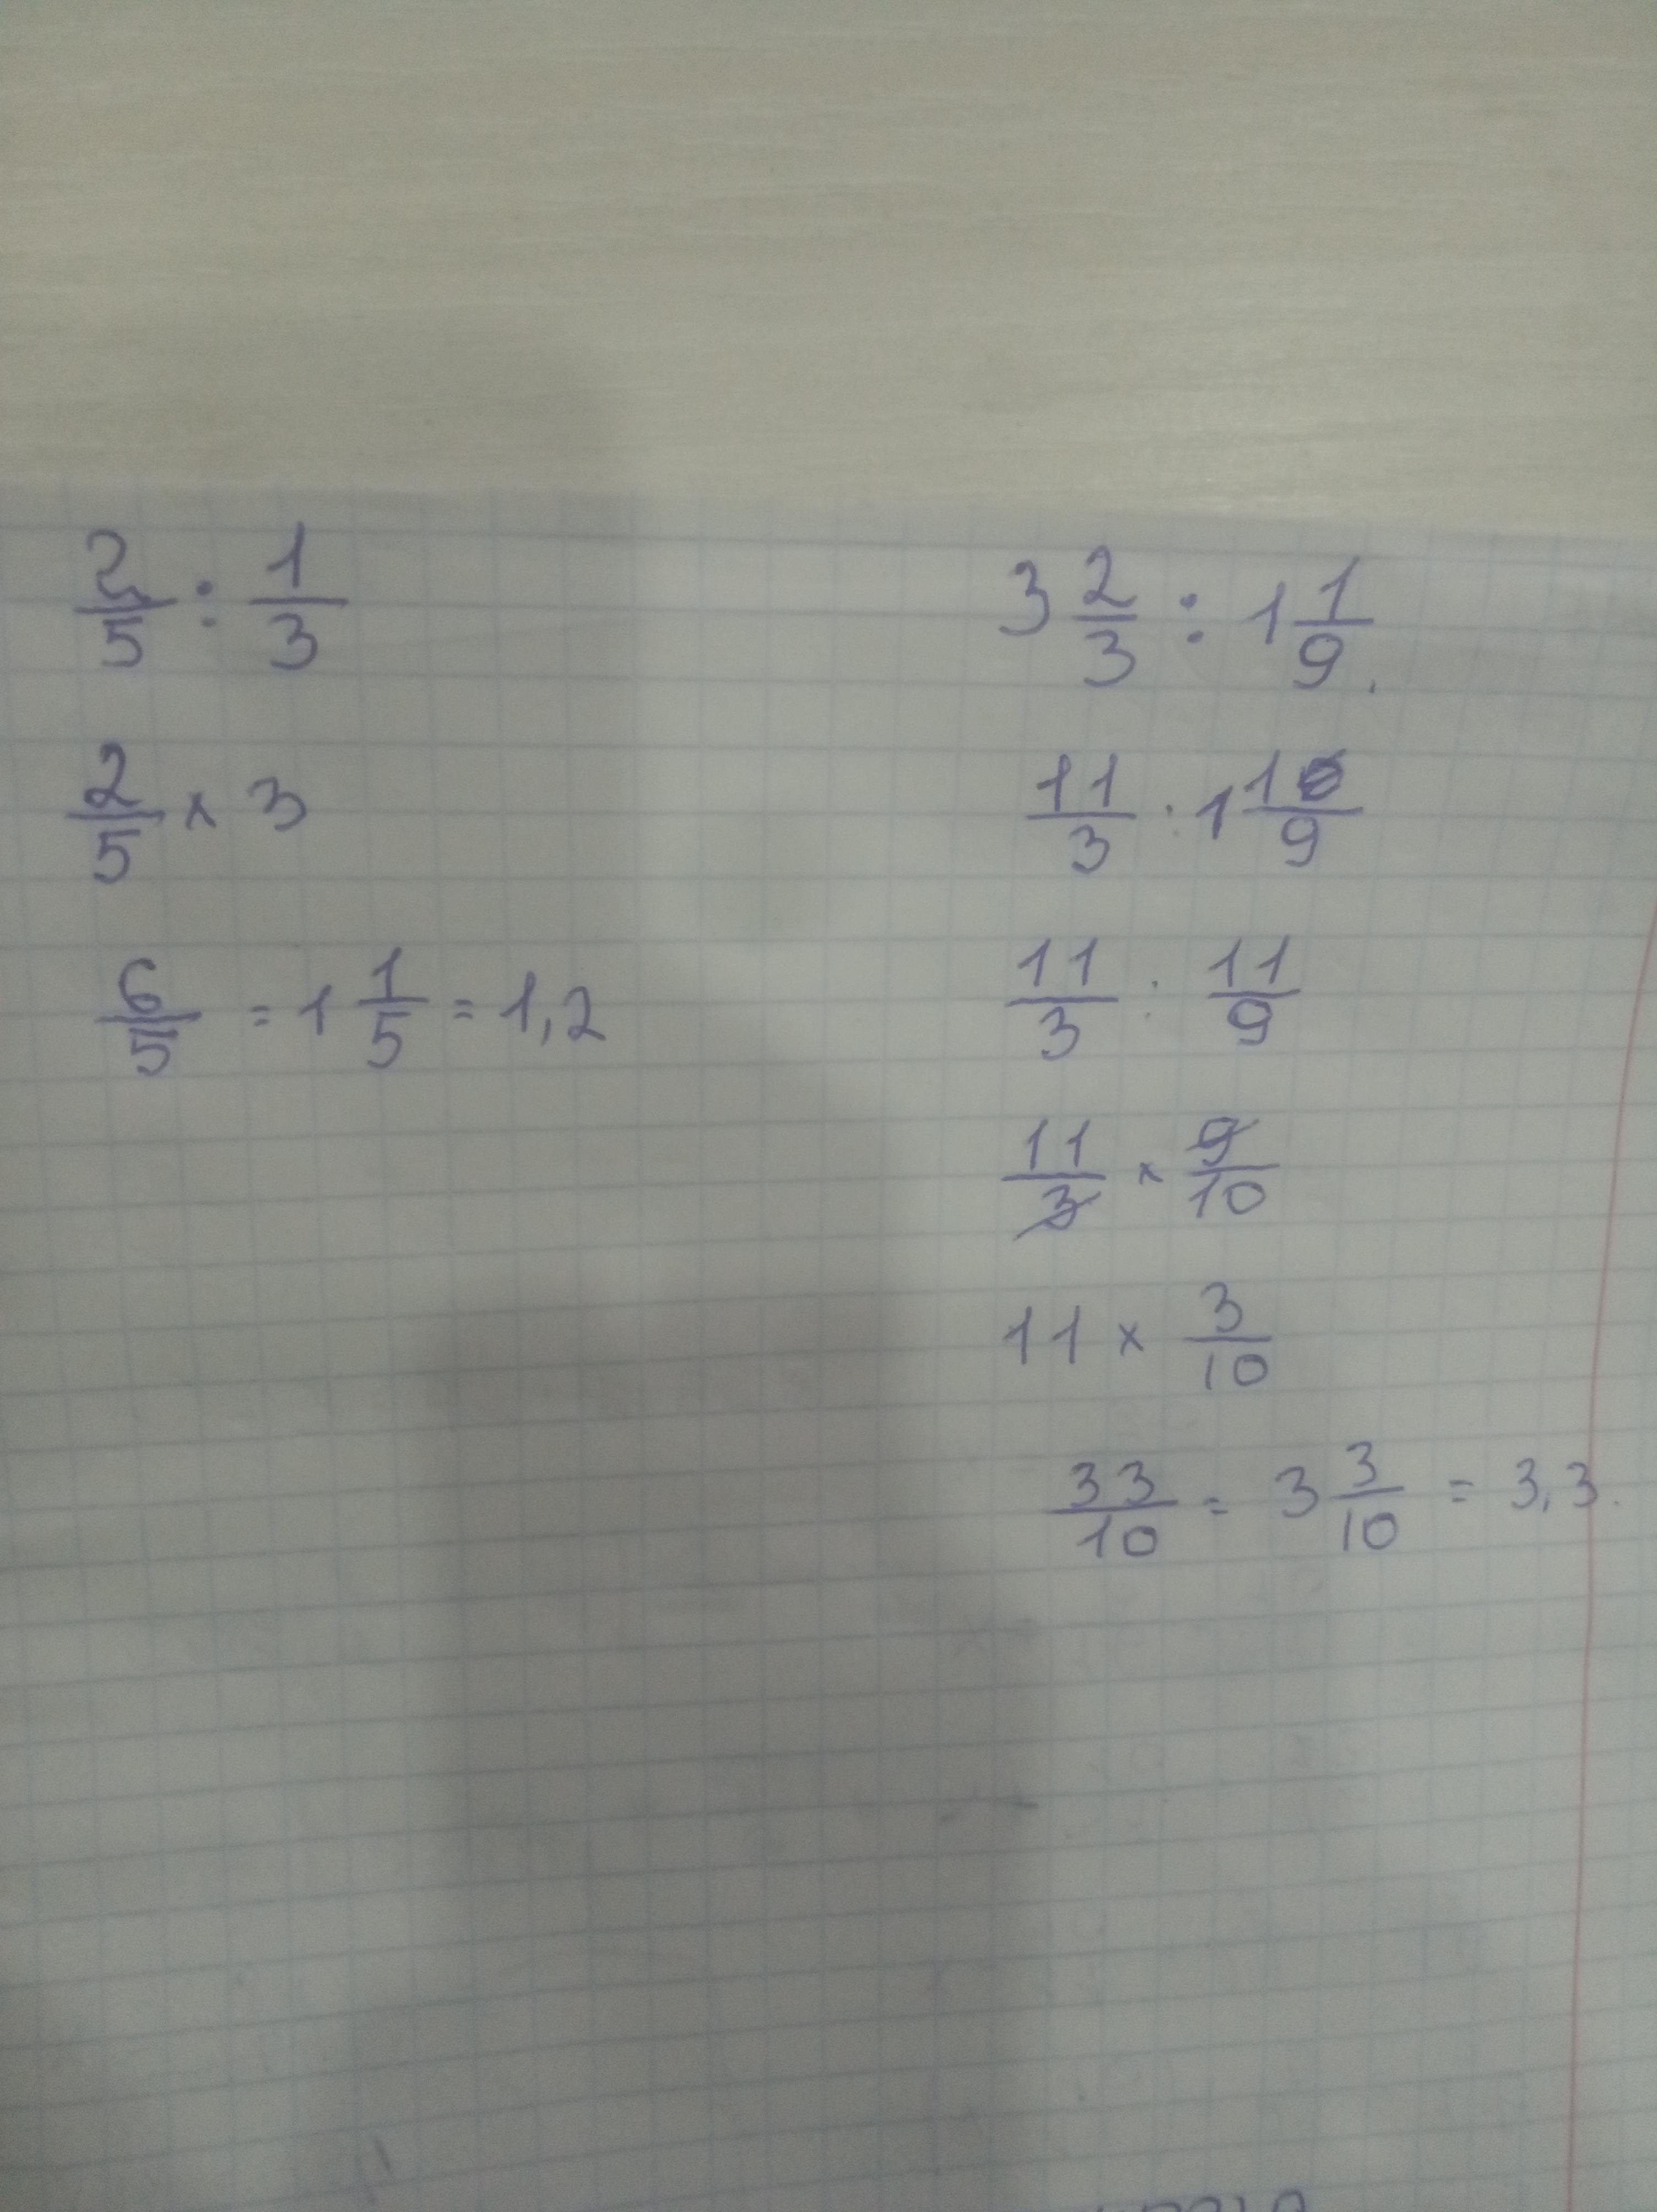 2/5 : 1/3
2/5 × 3
6/5 = 1 1/5 = 1,2
3 2/3 : 1 1/9.
11/3 : 1 10/9
11/3 : 11/9
11/3 × 9/10
11 × 3/10
33/10 = 3 3/10 = 3,3.